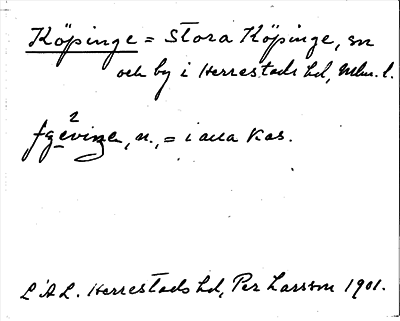 Köpinge = Stora Köpinge, sn
och by i Herrestads hd, Mlm. l.
2
, n., = i alla kas.
LAL. Herrestads hd, Per Larsson 1901.